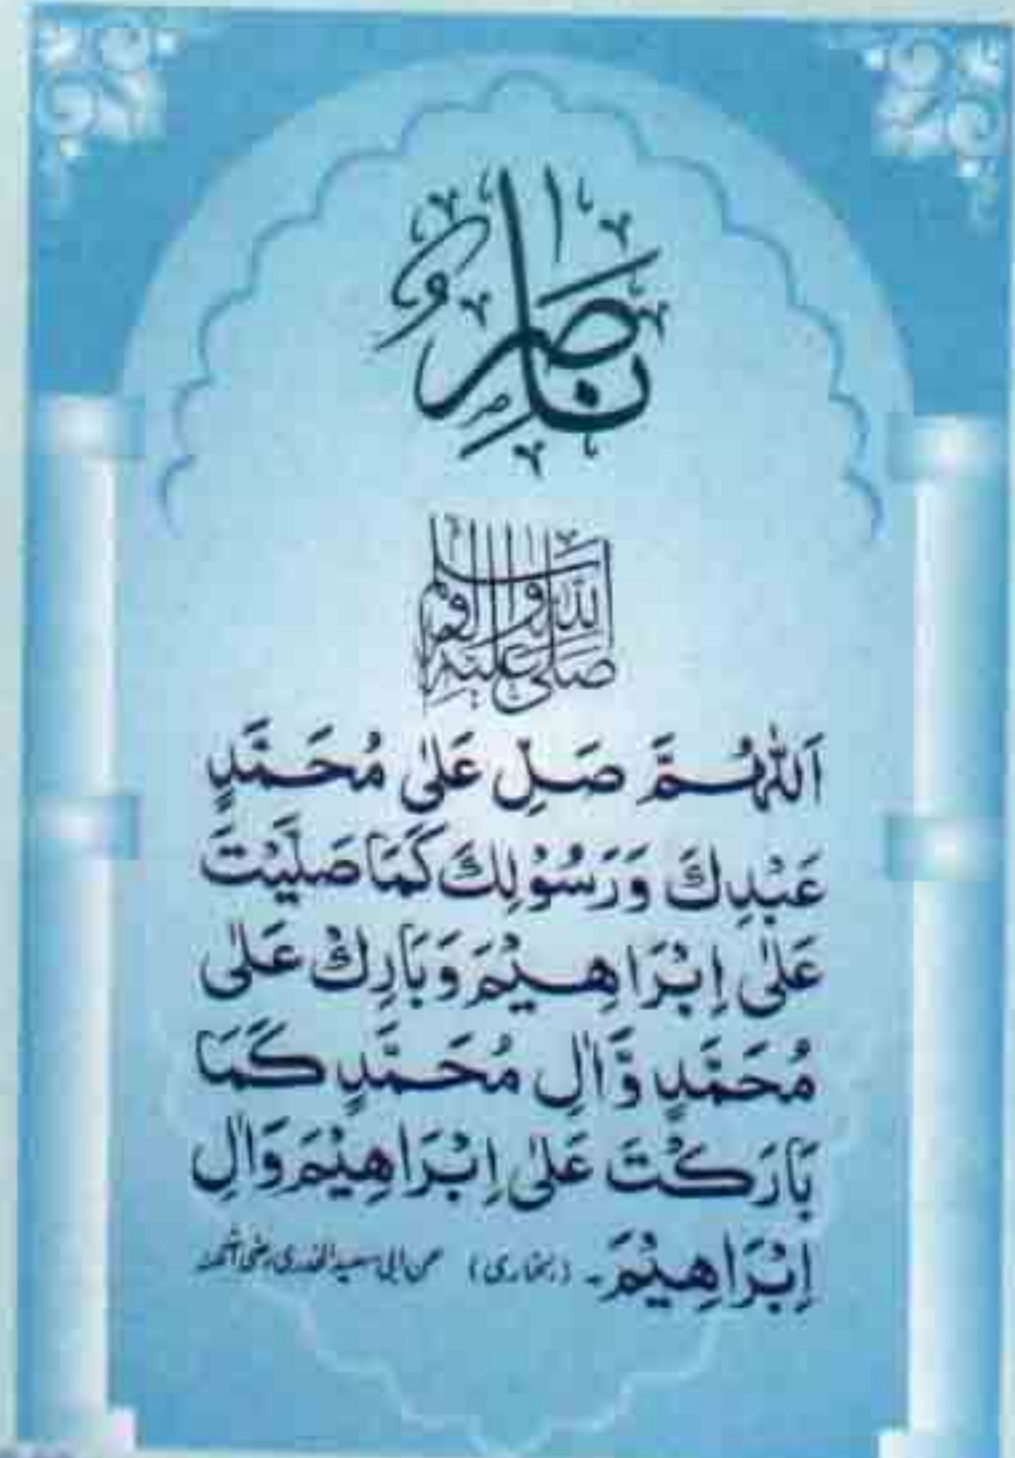 نَاصِرٌ
صَلَّى اللّٰهُ عَلَيْهِ وَآلِهٖ وَسَلَّمَ
اَللّٰهُمَّ صَلِّ عَلٰى مُحَمَّدٍ
عَبْدِكَ وَرَسُوْلِكَ كَمَا صَلَّيْتَ
عَلٰى اِبْرَاهِيْمَ وَبَارِكْ عَلٰى
مُحَمَّدٍ وَّاٰلِ مُحَمَّدٍ كَمَا
بَارَكْتَ عَلٰى اِبْرَاهِيْمَ وَاٰلِ
اِبْرَاهِيْمَ۔ (بخاری) عن ابی سعید الخدری رضی اللہ عنہ